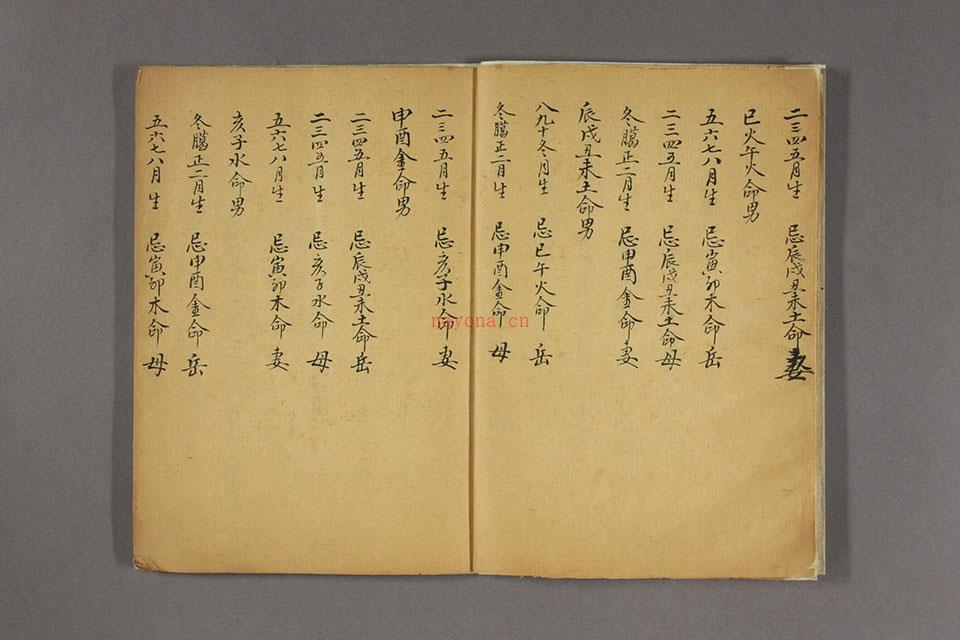 二三四五月生 忌辰戌丑未土命妻
巳火午火命男
五六七八月生 忌寅卯木命岳
二三四五月生 忌辰戌丑未土命母
冬臈正二月生 忌申酉金命妻
辰戌丑未土命男
八九十冬月生 忌巳午火命 岳
冬臈正二月生 忌申酉金命 母
二三四五月生 忌亥子水命妻
申酉金命男
二三四五月生 忌辰戌丑未土命岳
二三四五月生 忌亥子水命 母
五六七八月生 忌寅卯木命 妻
亥子水命男
冬臈正二月生 忌申酉金命 岳
五六七八月生 忌寅卯木命 母
nayona.cn